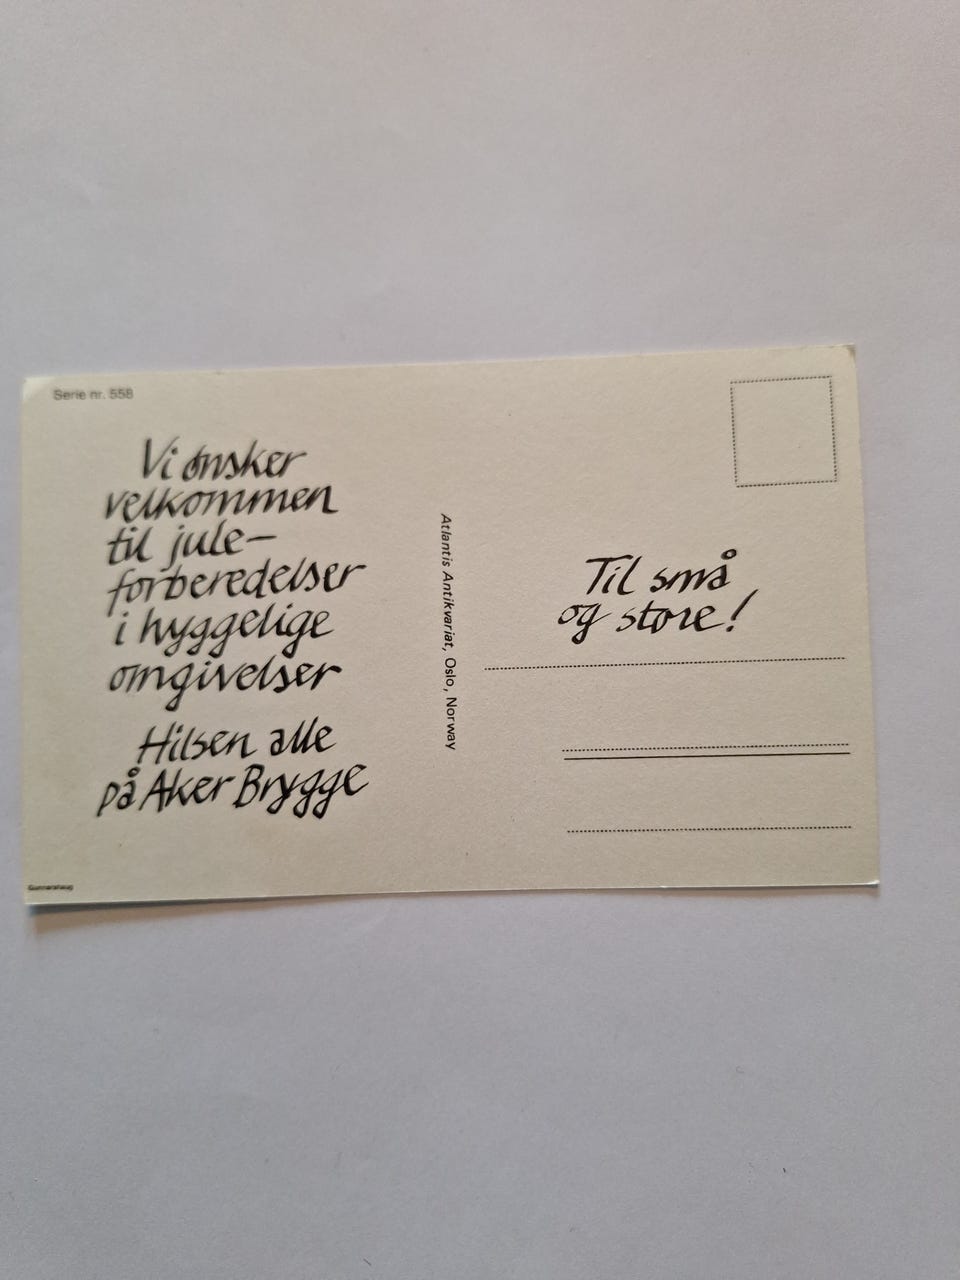 Serie nr. 558
Vi ønsker
velkommen
til jule-
forberedelser
i hyggelige
omgivelser
Hilsen alle
på Aker Brygge
Atlantis Antikvariat, Oslo, Norway
Til små
og store!